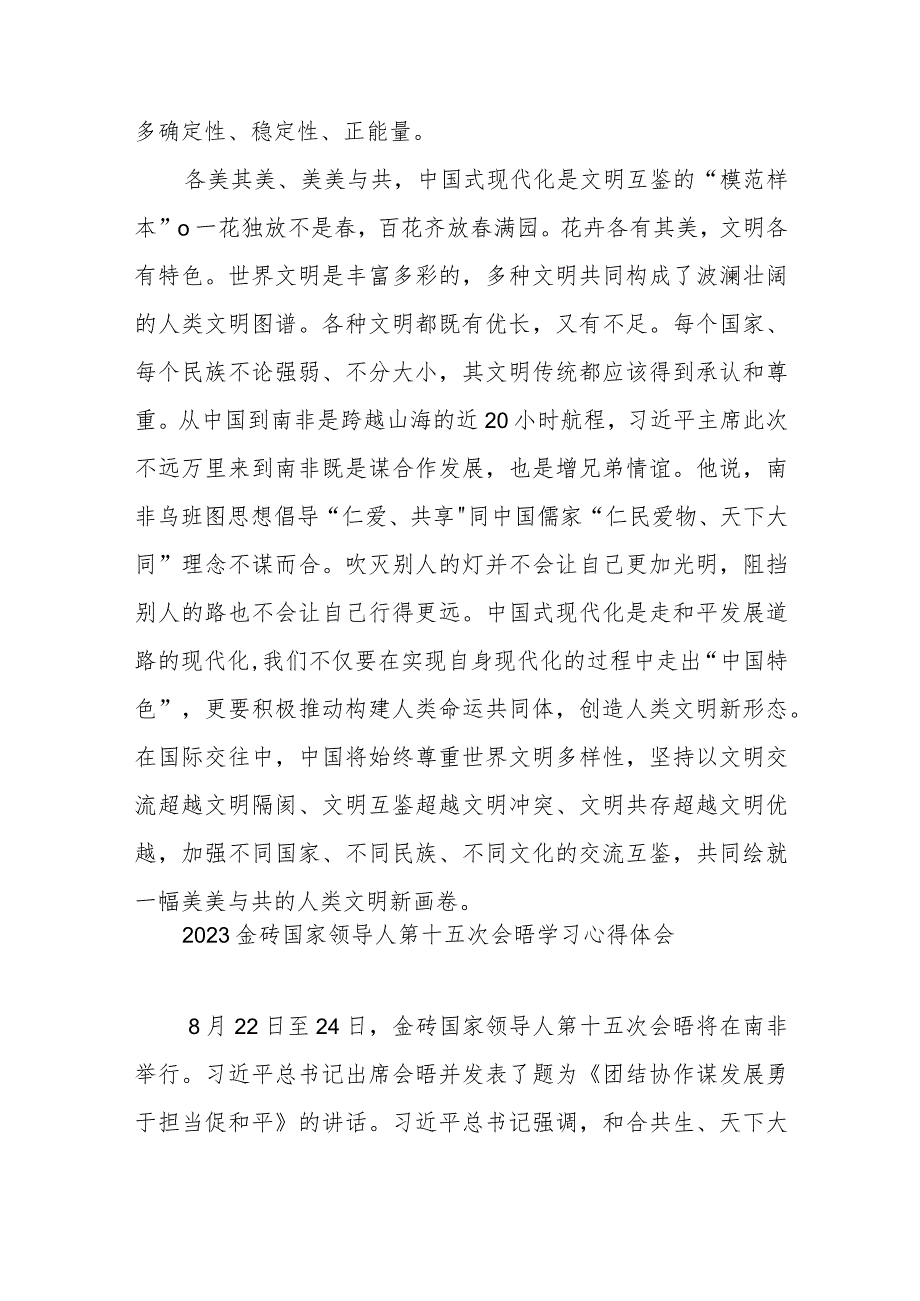 多确定性、稳定性、正能量。
各美其美、美美与共，中国式现代化是文明互鉴的“模范样
本”o一花独放不是春，百花齐放春满园。花卉各有其美，文明各
有特色。世界文明是丰富多彩的，多种文明共同构成了波澜壮阔
的人类文明图谱。各种文明都既有优长，又有不足。每个国家、
每个民族不论强弱、不分大小，其文明传统都应该得到承认和尊
重。从中国到南非是跨越山海的近20小时航程，习近平主席此次
不远万里来到南非既是谋合作发展，也是增兄弟情谊。他说，南
非乌班图思想倡导“仁爱、共享"同中国儒家“仁民爱物、天下大
同”理念不谋而合。吹灭别人的灯并不会让自己更加光明，阻挡
别人的路也不会让自己行得更远。中国式现代化是走和平发展道
路的现代化,我们不仅要在实现自身现代化的过程中走出“中国特
色”，更要积极推动构建人类命运共同体，创造人类文明新形态。
在国际交往中，中国将始终尊重世界文明多样性，坚持以文明交
流超越文明隔阂、文明互鉴超越文明冲突、文明共存超越文明优
越，加强不同国家、不同民族、不同文化的交流互鉴，共同绘就
一幅美美与共的人类文明新画卷。
2023金砖国家领导人第十五次会晤学习心得体会
8月22日至24日，金砖国家领导人第十五次会晤将在南非
举行。习近平总书记出席会晤并发表了题为《团结协作谋发展勇
于担当促和平》的讲话。习近平总书记强调，和合共生、天下大